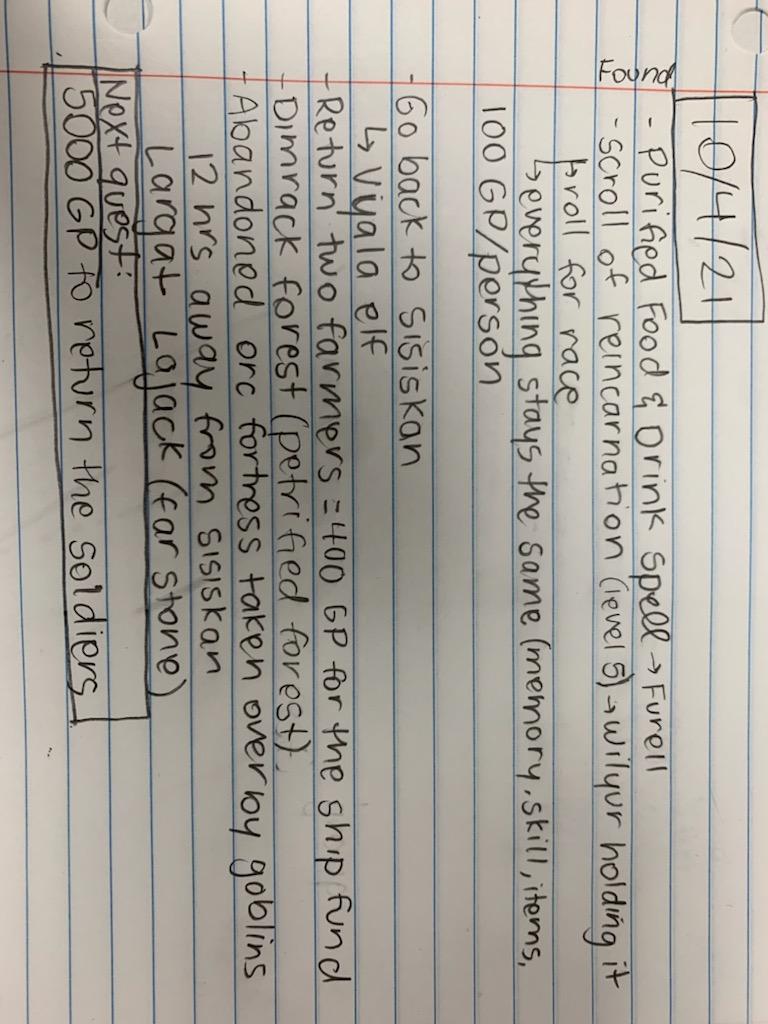 10/4/21
Found
- Purified Food & Drink spell → Furell
- scroll of reincarnation (level 5) → wilyur holding it
↳ roll for race
↳ everything stays the same (memory, skill, items,
100 GP/person
- Go back to sisiskan
↳ Viyala elf
- Return two farmers = 400 GP for the ship fund
- Dimrack forest (petrified forest)
- Abandoned orc fortress taken over by goblins
12 hrs away from sisiskan
Largat Lojack (far stone)
Next quest:
5000 GP to return the soldiers